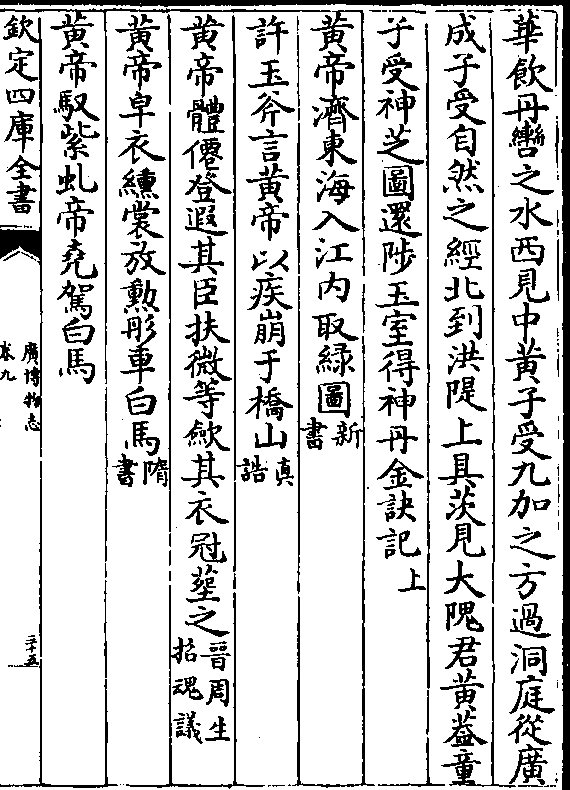 華飲丹轡之水西見中黄子受九加之方過洞庭從廣
成子受自然之經北到洪隄上具茨見大隗君黄葢童
子受神芝圖還陟玉室得神丹金訣記上
黄帝濟東海入江内取緑圖新書
許玉斧言黄帝以疾崩于橋山真誥
黄帝體僊登遐其臣扶微等歛其衣冠塟之晉周生招魂議
黄帝皁衣纁裳放勲彤車白馬隋書
黄帝馭紫虬帝堯駕白馬
欽定四庫全書
廣博物志
卷九
三十五